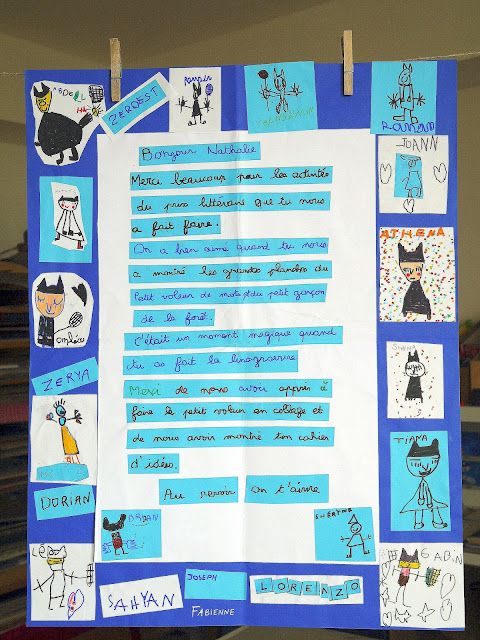 ABDELLAH
ZERDEST
Romain
RANIM
JOANN
Bonjour Nathalie
Merci beaucoup pour les activités
du prix littéraire que tu nous
a fait faire.
On a bien aimé quand tu nous
a montré les grandes planches du
Petit voleur de mots et du petit garçon
de la forêt.
C'était un moment magique quand
tu as fait la linogravure
Merci de nous avoir appris à
faire le petit voleur en collage et
de nous avoir montré ton cahier
d'idées.
Au revoir on t'aime
ATHENA
TIANA
ZERYA
DORIAN
BRYAN
LÉO
GABIN
SAHYAN
JOSEPH
LORENZO
FABIENNE